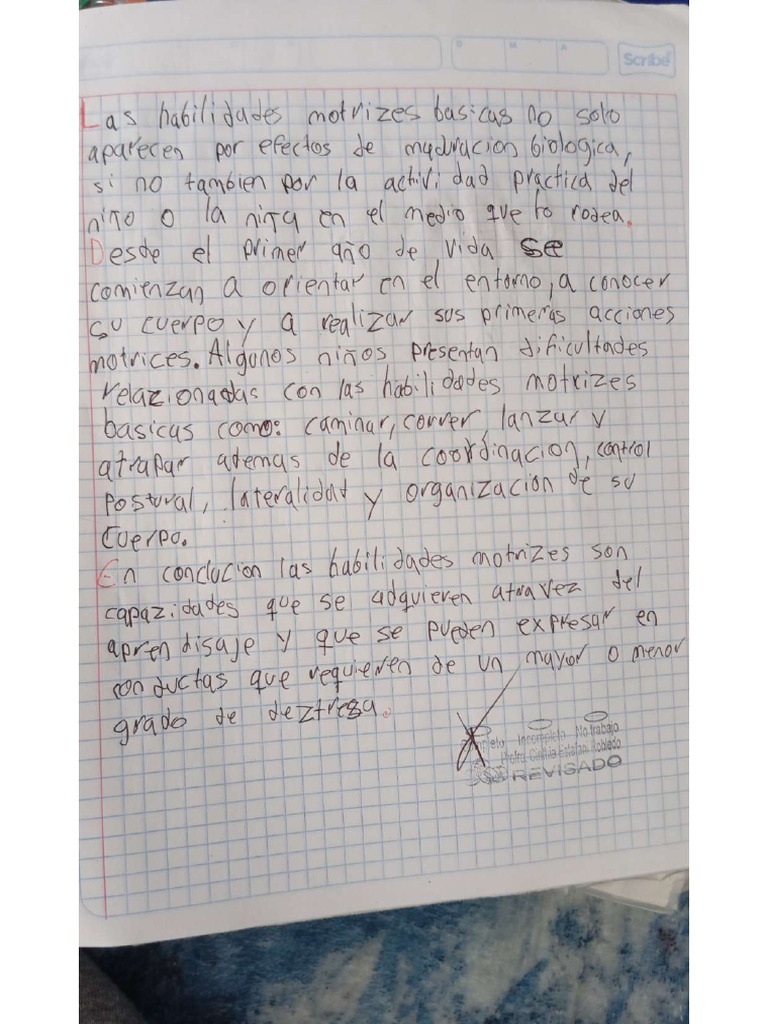 D M A
Scribe
Las habilidades motrizes basicas no solo
aparecen por efectos de maduracion biologica,
si no tambien por la actividad practica del
niño o la niña en el medio que lo rodea.
Desde el primer año de vida se
comienzan a orientar en el entorno, a conocer
su cuerpo y a realizar sus primeras acciones
motrices. Algunos niños presentan dificultades
relazionadas con las habilidades motrizes
basicas como: caminar, correr, lanzar y
atrapar ademas de la coordinacion, control
postural, lateralidad y organización de su
cuerpo.
En conclucion las habilidades motrizes son
capazidades que se adquieren atravez del
aprendisaje y que se pueden expresar en
conductas que requieren de un mayor o menor
grado de deztreza.
Incompleto No trabajo
Profra. Robledo
REVISADO